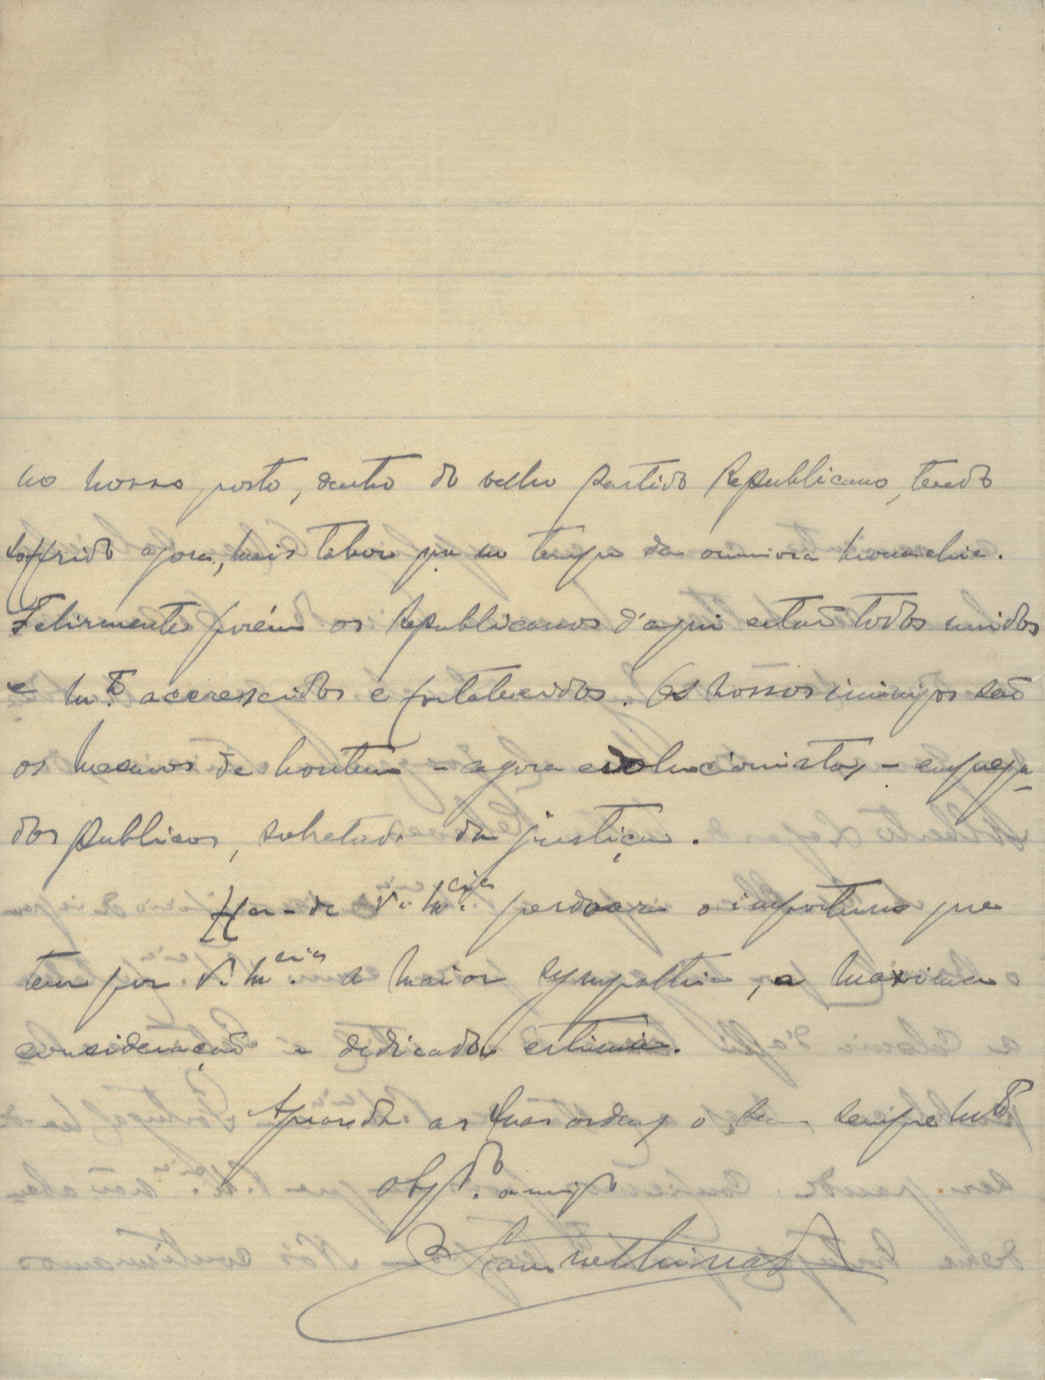 no nosso posto, dentro do velho Partido Republicano, tendo
soffrido agora, mais talvez que no tempo da ominosa monarchia.
Felismente porém os Republicanos d'aqui estão todos unidos
e m.to accrescidos e fortalecidos. Os nossos inimigos são
os mesmos de hontem - agora evolucionistas - emprega-
dos publicos, sobretudo da justiça.
Ha-de V. M.cias perdoar o importuno que
tem por V. M.cias a maior sympathia, a maxima
consideração e dedicada estima.
Aguarda as suas ordens o sempre m.to
obg.do amigo